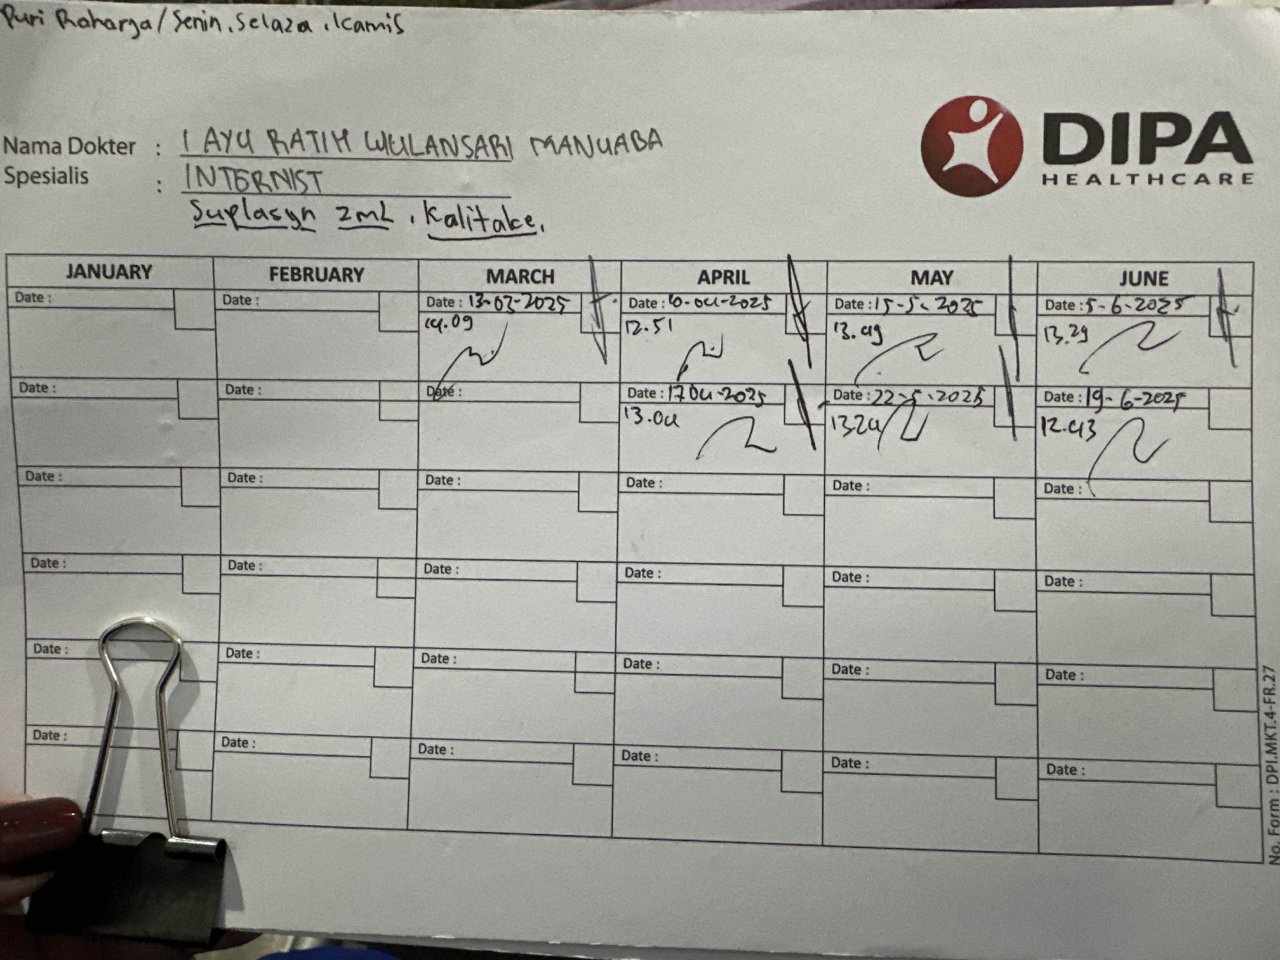 Puri Raharga/Senin, Selaza, Kamis
DIPA
HEALTHCARE
Nama Dokter : I AYU RATIH WULANSARI MANUABA
Spesialis : INTERNIST
Suplasyn 2mL, Kalitake,
JANUARY FEBRUARY MARCH APRIL MAY JUNE
Date : Date : Date : 13-03-2025 Date : 10-04-2025 Date : 15-5-2025 Date : 5-6-2025
14.09 12.51 13.49 13.29
Date : Date : Date : Date : 17 04-2025 Date : 22-5-2025 Date : 19-6-2025
13.04 13.24 12.43
Date : Date : Date : Date : Date : Date :
Date : Date : Date : Date : Date : Date :
Date : Date : Date : Date : Date : Date :
Date : Date : Date : Date : Date : Date :
No. Form : DPI.MKT.4-FR.27